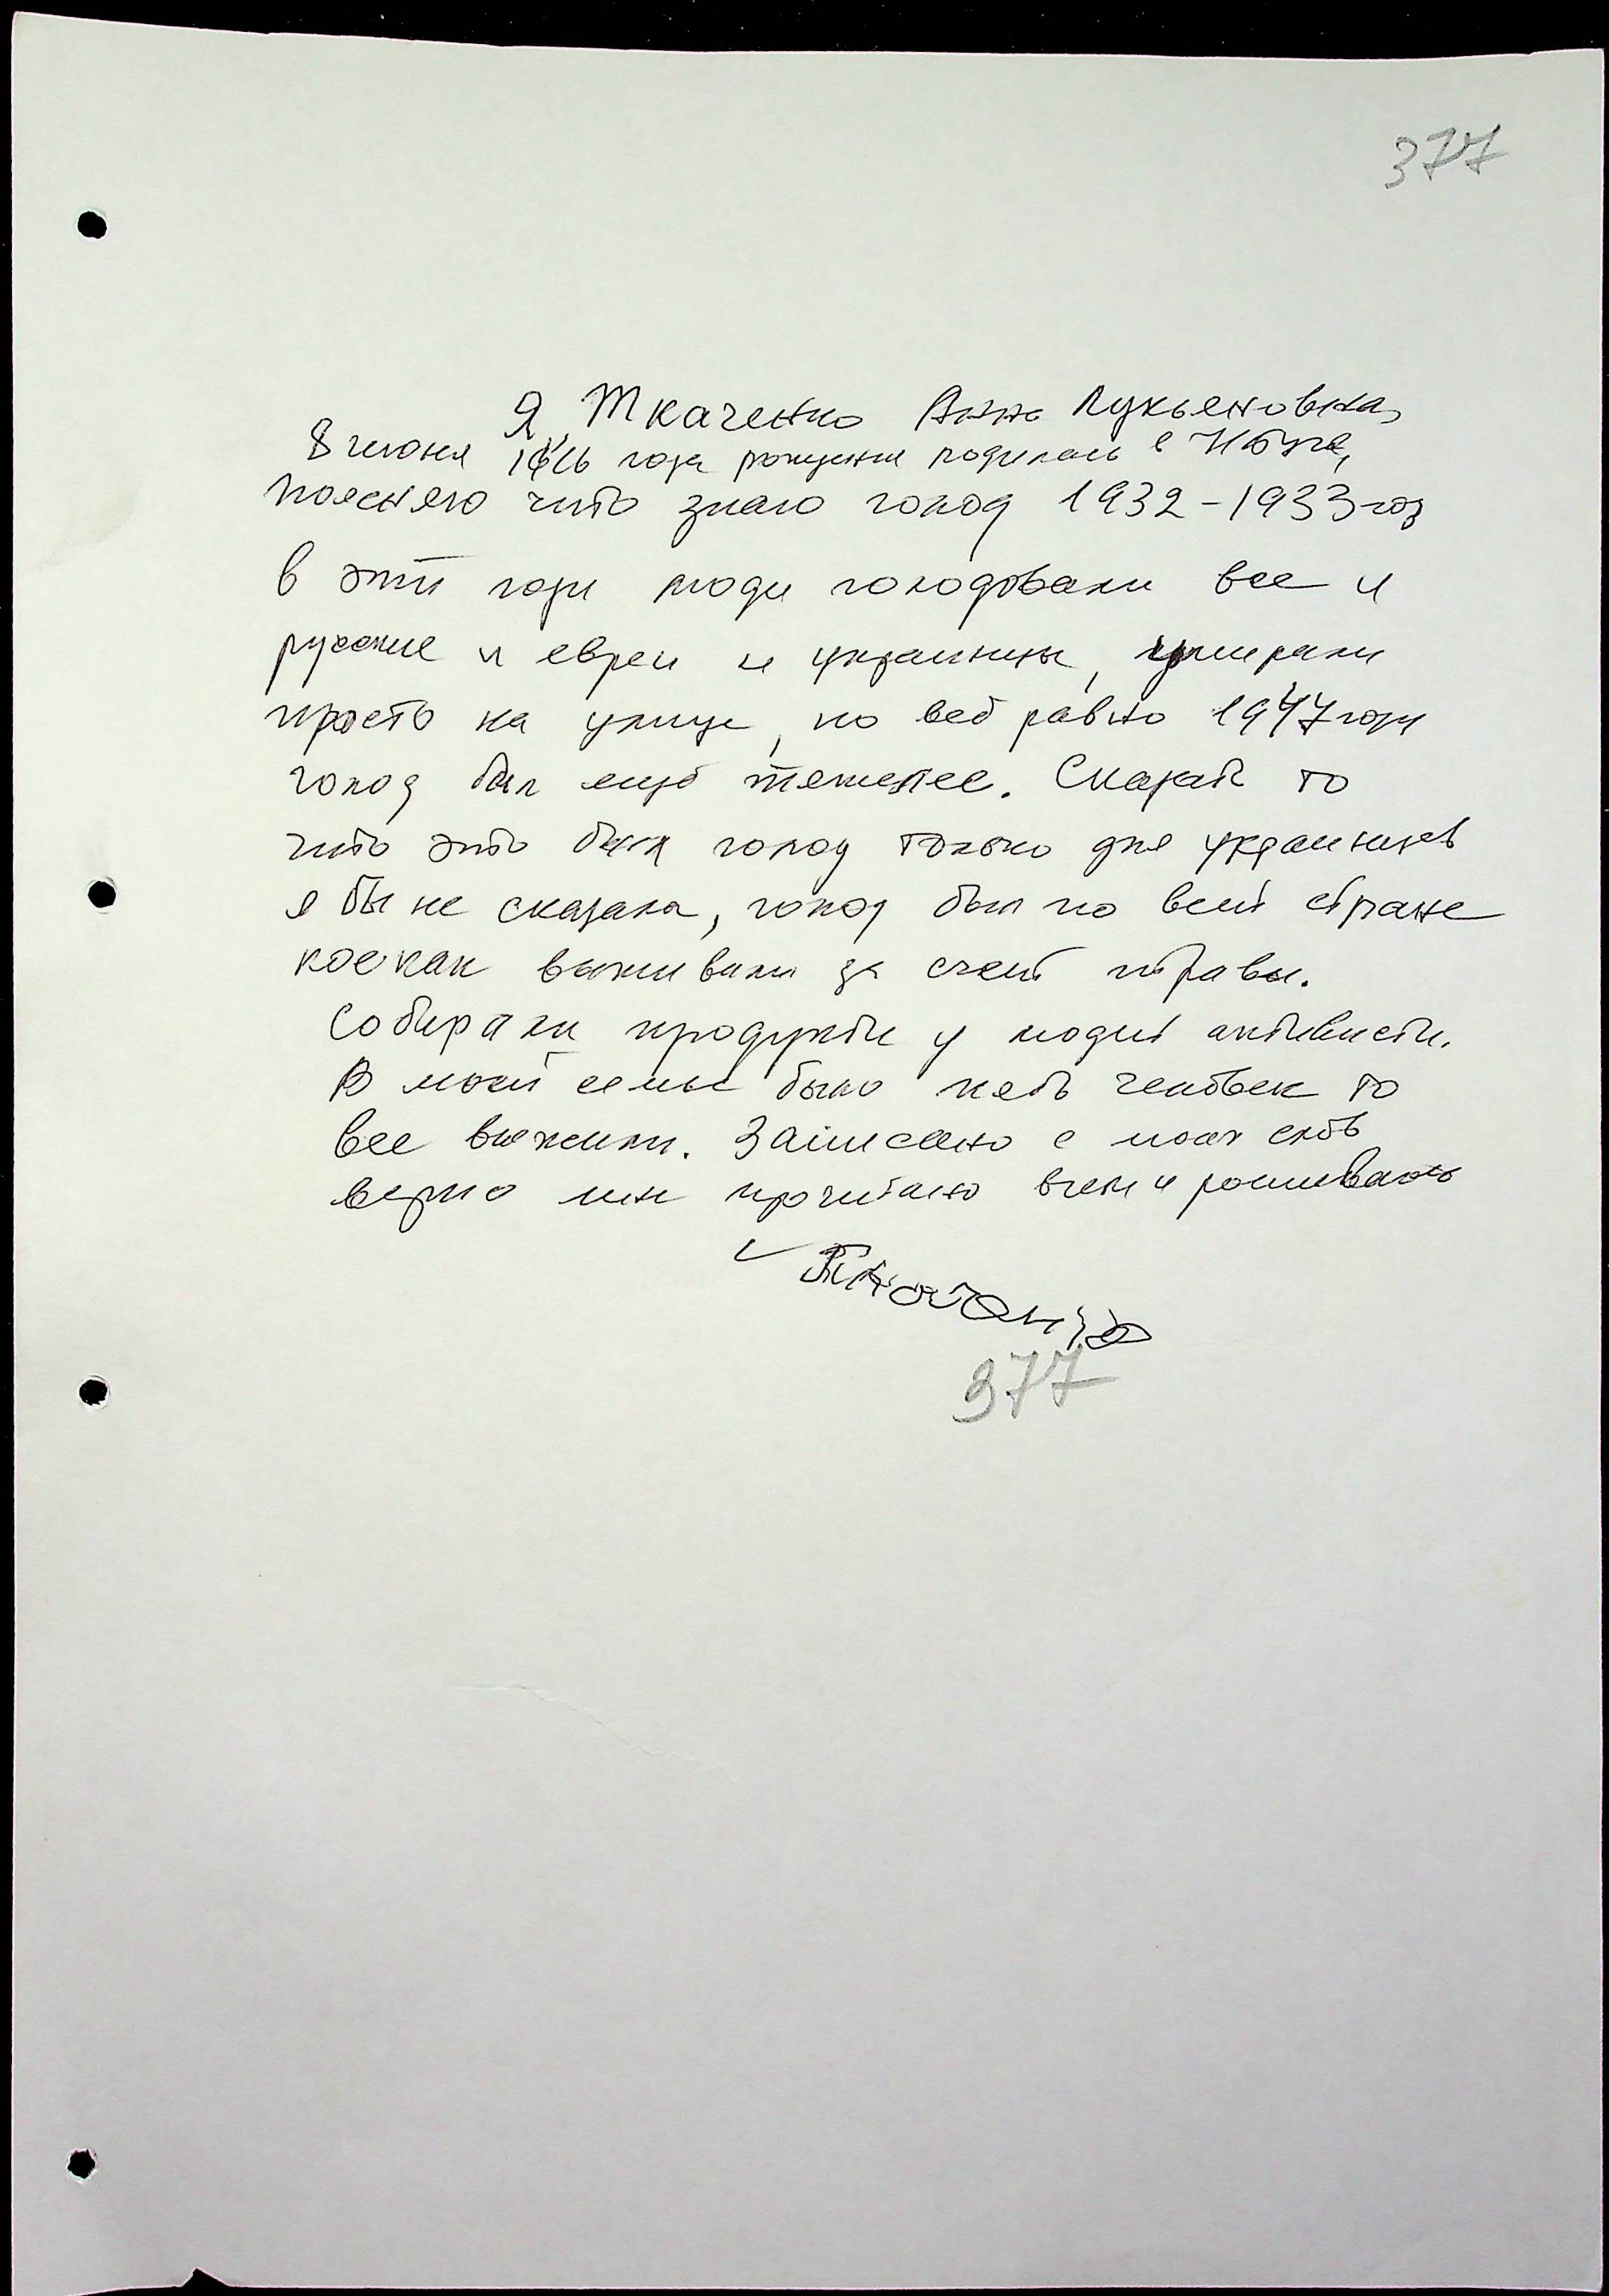 377
Я, Ткаченко Анна Лукьяновна,
8 июня 1926 года рождения родилась в Н Буге,
поясняю что знаю голод 1932-1933 год
в эти годы люди голодовали все и
русские и евреи и украинцы, умирали
просто на улице, но всё равно 1947 году
голод был ещё тяжелее. Сказать то
что это был голод только для украинцев
я бы не сказала, голод был по всей стране
коекак выживали за счёт травы.
Собирали продукты у людей активисты.
В моей семье было пять человек то
все выжили. Записано с моих слов
верно мне прочитано вслух и
377